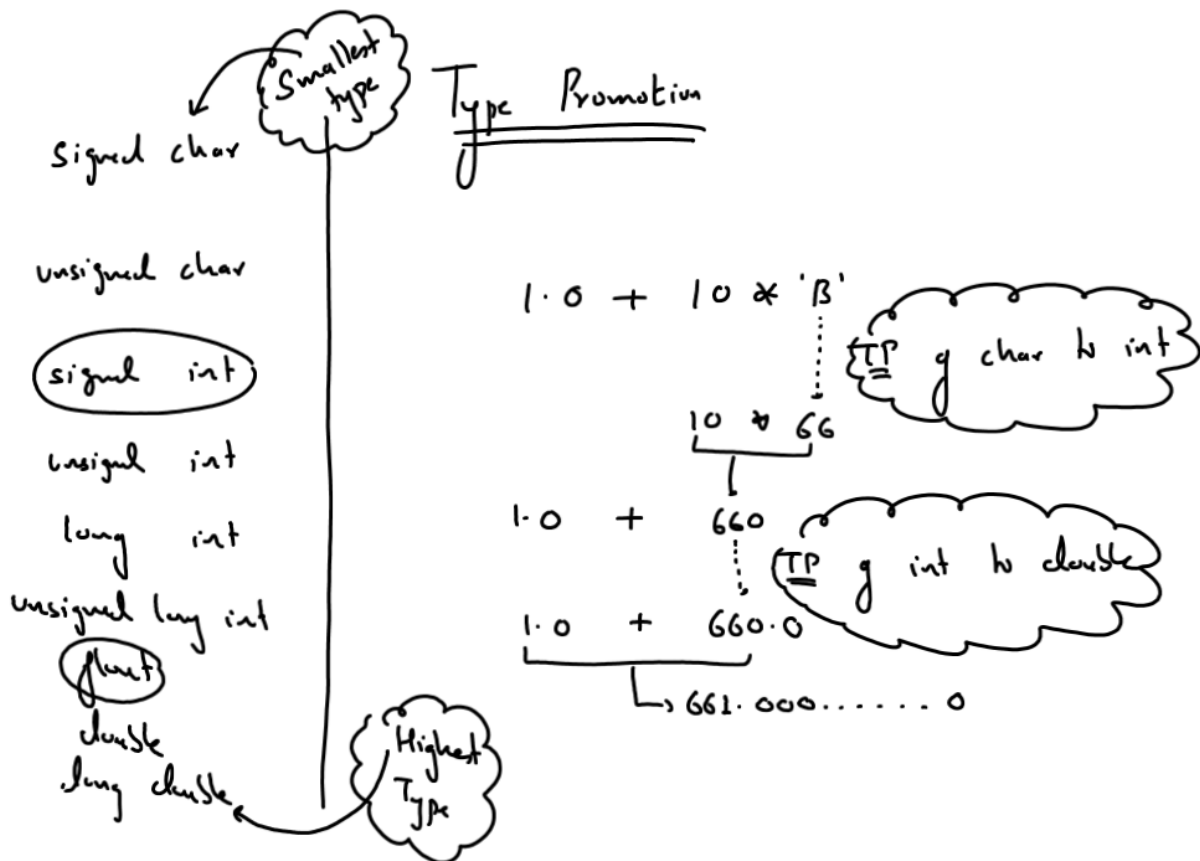 Smallest
type
Type Promotion
signed char
unsigned char
signed int
unsigned int
long int
unsigned long int
float
double
long double
Highest
Type
1.0 + 10 * 'B'
TP of char to int
10 * 66
1.0 + 660
TP of int to double
1.0 + 660.0
661.000....... 0